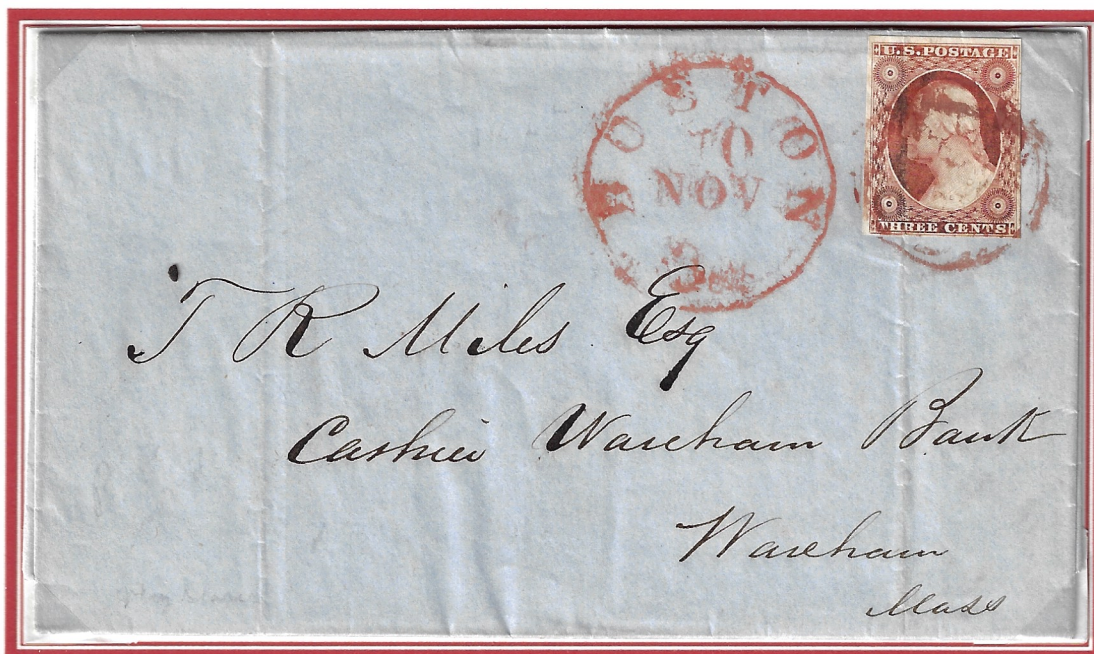 U.S. POSTAGE
THREE CENTS
BOSTON
10
NOV
T R Miles Esq
Cashier Wareham Bank
Wareham
Mass